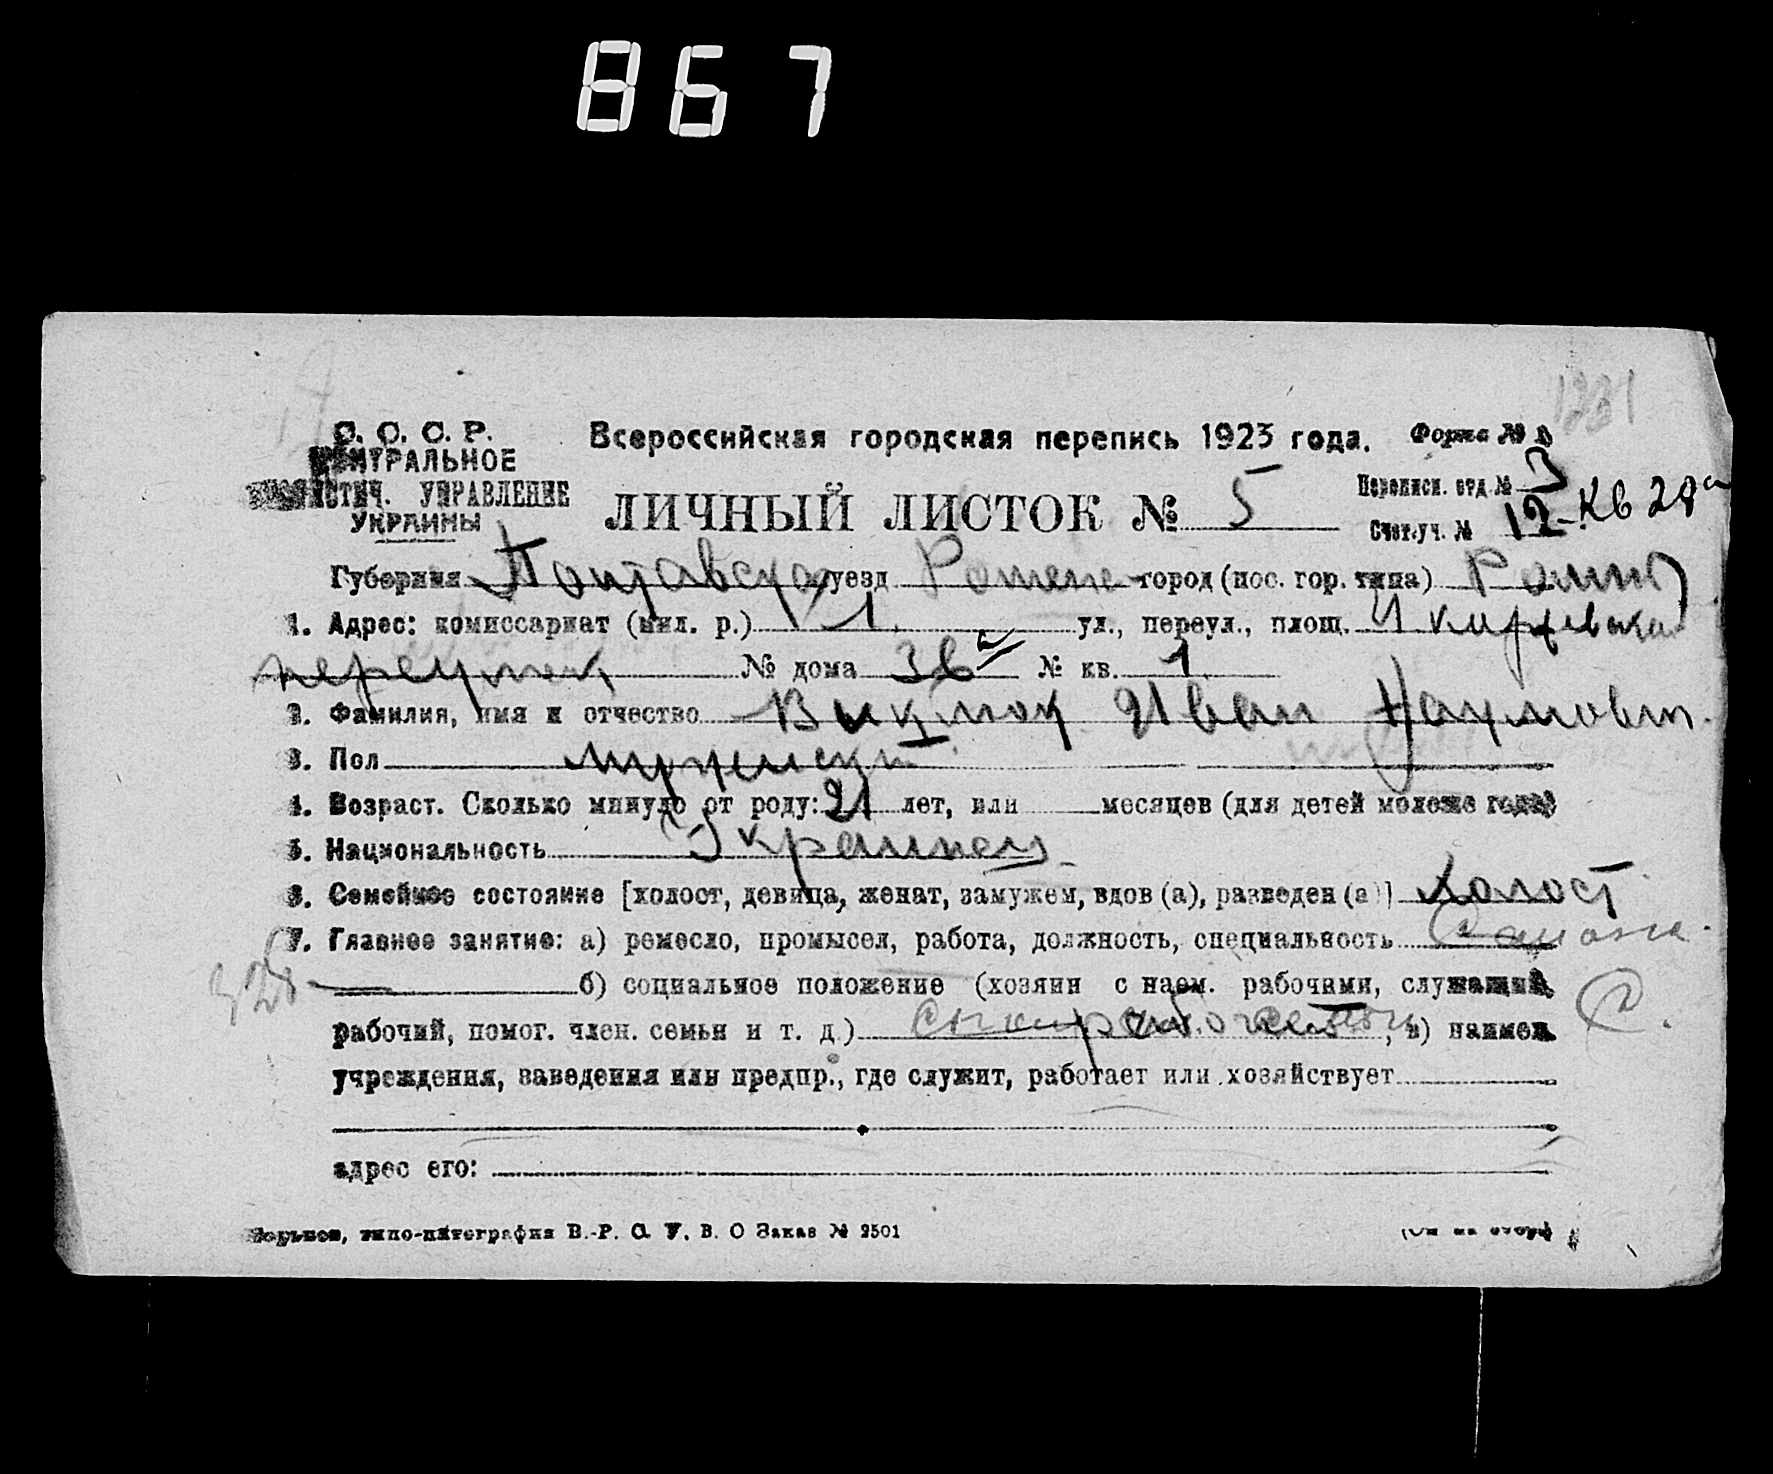 867
1331
С. С. С. Р.
ЦЕНТРАЛЬНОЕ
СТАТИСТИЧ. УПРАВЛЕНИЕ
УКРАИНЫ
Всероссийская городская перепись 1923 года.
Форма №
ЛИЧНЫЙ ЛИСТОК № 5
Переписн. отд № 3
Счет.уч. № 12 - Кв 28а
Губерния Полтавская уезд Ромен город (пос. гор. типа) Ромни
1. Адрес: комиссариат (мил. р.) 1 ул., переул., площ. 4
переулок № дома 36 а № кв. 1
2. Фамилия, имя и отчество Иван Наумович
3. Пол мужской
4. Возраст. Сколько минуло от роду: 21 лет, или месяцев (для детей моложе года)
5. Национальность Украинец
6. Семейное состояние [холост, девица, женат, замужем, вдов (а), разведен (а)] холост
7. Главное занятие: а) ремесло, промысел, работа, должность, специальность Сапожн.
б) социальное положение (хозяин с наем. рабочими, служащий,
рабочий, помог. член. семьи и т. д.) , в) наимен.
учреждения, заведения или предпр., где служит, работает или хозяйствует
адрес его:
Харьков, типо-литография В.-Р. С. У. В. О Заказ № 2501
(См на обор)